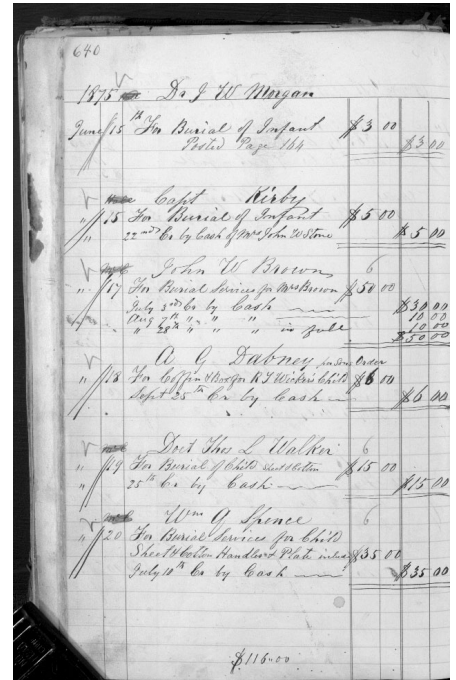 640
1875 Dr J W Morgan
June 15th For Burial of Infant $3 00
Posted Page 164 $3 00
Capt Kirby
" 15 For Burial of Infant $5 00
" 22nd Cr by Cash of Mrs John W Stone $5 00
John W Brown 6
" 17 For Burial Services for Mrs Brown $50 00
July 3rd Cr by Cash $30 00
Aug 7th " " " 10 00
" 28th " " " in full 10 00
$50 00
A G Dabney Order
" 18 For Coffin & Box for R T Wicker's Child $6 00
Sept 25th Cr by Cash $6 00
Doct Thos L Walker 6
" 19 For Burial of Child Sheet & Cotton $15 00
25th Cr by Cash $15 00
Wm G Spence 6
" 20 For Burial Services for Child
Sheet & Cotton Handles & Plate $35 00
July 10th Cr by Cash $35 00
$116.00